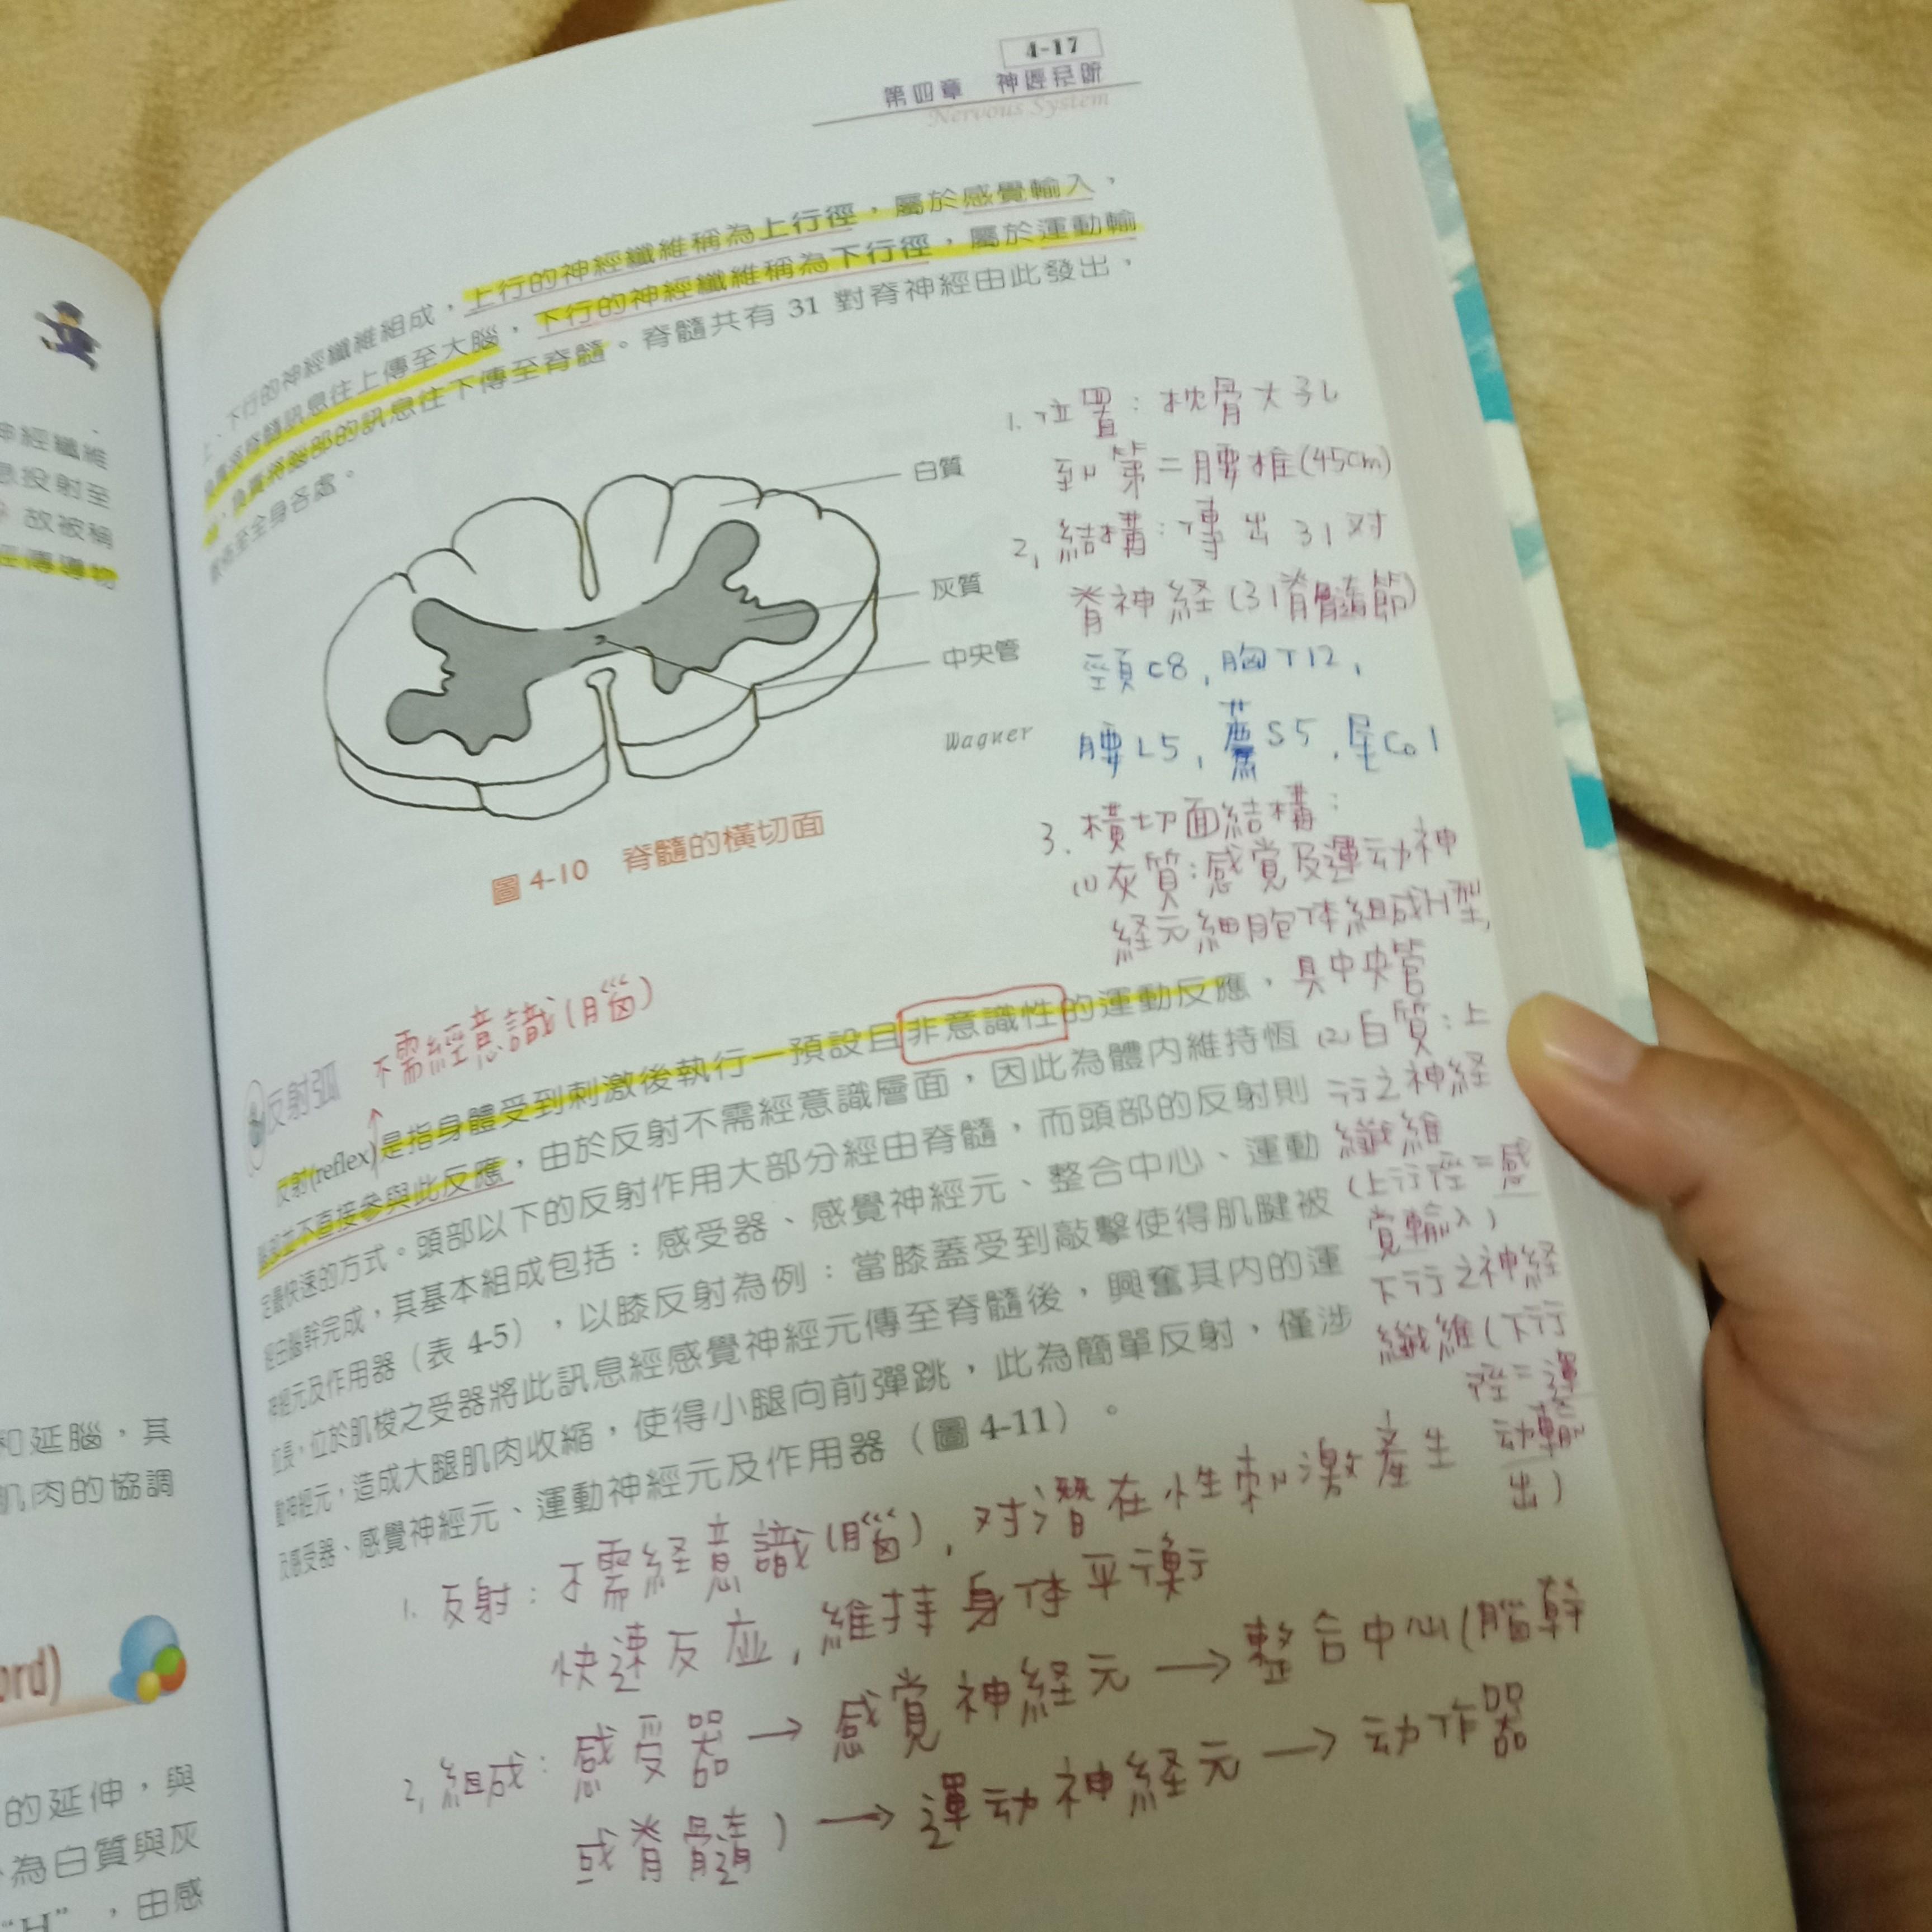 4-17
第四章 神經系統
Nervous System
上、下行的神經纖維組成，上行的神經纖維稱為上行徑，屬於感覺輸入，
負責將脊髓訊息往上傳至大腦，下行的神經纖維稱為下行徑，屬於運動輸
負責將腦部的訊息往下傳至脊髓。脊髓共有 31 對脊神經由此發出，
至全身各處。
白質
灰質
中央管
Wagner
圖 4-10 脊髓的橫切面
1. 位置：枕骨大孔
到第二腰椎(45cm)
2, 結構：傳出31对
脊神経(31脊髓節)
頸C8, 胸T12,
腰L5, 薦S5, 尾Co1
3. 橫切面結構：
(1)灰質：感覚及運动神
経元細胞体組成H型,
具中央管
(2)白質：上
行之神経
纖維
(上行徑=感
覚輸入)
下行之神経
纖維(下行
徑=運
动輸
出)
不需經意識(腦)
反射弧
反射(reflex)是指身體受到刺激後執行一預設且非意識性的運動反應，
並不直接參與此反應，由於反射不需經意識層面，因此為體內維持恆
定最快速的方式。頭部以下的反射作用大部分經由脊髓，而頭部的反射則
經由腦幹完成，其基本組成包括：感受器、感覺神經元、整合中心、運動
神經元及作用器（表 4-5），以膝反射為例：當膝蓋受到敲擊使得肌腱被
拉長，位於肌梭之受器將此訊息經感覺神經元傳至脊髓後，興奮其內的運
動神經元，造成大腿肌肉收縮，使得小腿向前彈跳，此為簡單反射，僅涉
及感受器、感覺神經元、運動神經元及作用器（圖 4-11）。
1. 反射：不需経意識(腦), 对潛在性刺激產生
快速反应, 維持身体平衡
2, 組成：感受器→感覚神経元→整合中心(腦幹
或脊髓)→運动神経元→动作器
神經纖維
息投射至
故被稱
經傳導物
和延腦，其
肌肉的協調
ord)
的延伸，與
為白質與灰
“H”，由感